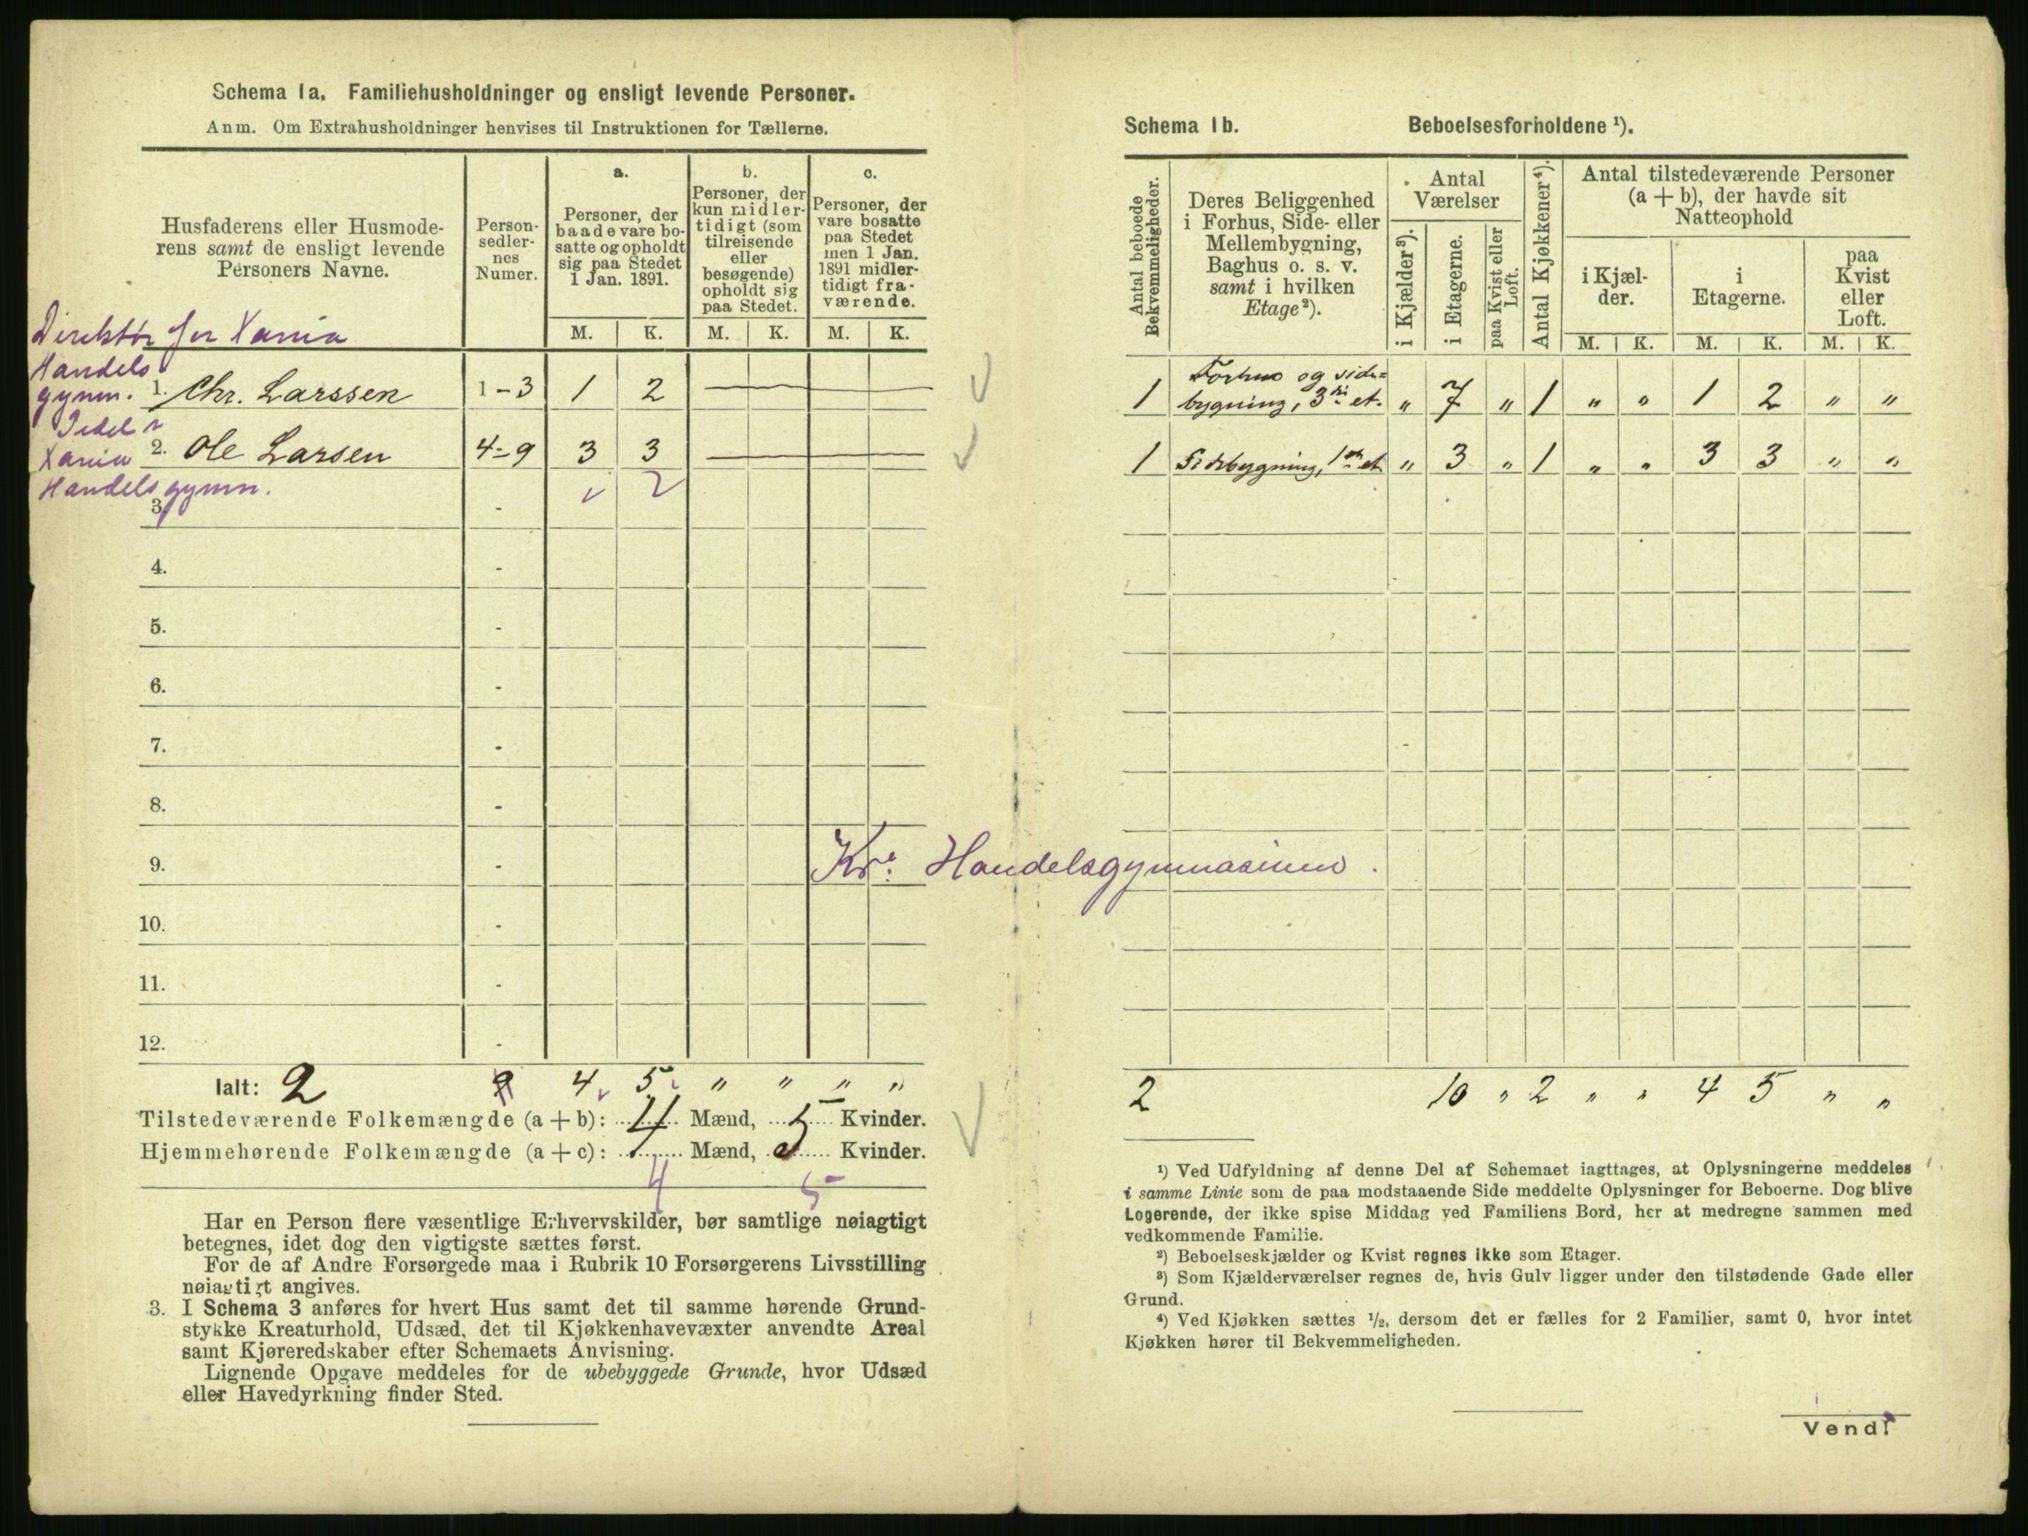 Schema 1a. Familiehusholdninger og ensligt levende Personer.
Anm. Om Extrahusholdninger henvises til Instruktionen for Tællerne.
Husfaderens eller Husmode-
rens samt de ensligt levende
Personers Navne.
Person-
sedler-
nes
Numer.
a.
Personer, der
baade vare bo-
satte og opholdt
sig paa Stedet
1 Jan. 1891.
b.
Personer, der
kun midler-
tidigt (som
tilreisende
eller
besøgende)
opholdt sig
paa Stedet.
c.
Personer, der
vare bosatte
paa Stedet
men 1 Jan.
1891 midler-
tidigt fra-
værende.
M. K. M. K. M. K.
Direktør for Xania
Handels
gymn. 1. Chr. Larssen 1-3 1 2
2. Ole Larsen 4-9 3 3
Xania
Handelsgymn.
3. -
4. -
5. -
6. -
7. -
8. -
9. -
10. -
11. -
12. -
Ialt: 2 9 4 5 " " " "
Tilstedeværende Folkemængde (a + b): 4 Mænd, 5 Kvinder.
Hjemmehørende Folkemængde (a + c): Mænd, Kvinder.
4 5
Har en Person flere væsentlige Erhvervskilder, bør samtlige nøiagtigt
betegnes, idet dog den vigtigste sættes først.
For de af Andre Forsørgede maa i Rubrik 10 Forsørgerens Livsstilling
nøiagtigt angives.
3. I Schema 3 anføres for hvert Hus samt det til samme hørende Grund-
stykke Kreaturhold, Udsæd, det til Kjøkkenhavevæxter anvendte Areal
samt Kjøreredskaber efter Schemaets Anvisning.
Lignende Opgave meddeles for de ubebyggede Grunde, hvor Udsæd
eller Havedyrkning finder Sted.
Kr. Handelsgymnasium.
Schema 1b. Beboelsesforholdene ¹).
Antal beboede
Bekvemmeligheder.
Deres Beliggenhed
i Forhus, Side- eller
Mellembygning,
Baghus o. s. v.
samt i hvilken
Etage²).
Antal
Værelser
i Kjælder³).
i Etagerne.
paa Kvist eller
Loft.
Antal Kjøkkener⁴).
Antal tilstedeværende Personer
(a + b), der havde sit
Natteophold
i Kjæl-
der.
i
Etagerne.
paa
Kvist
eller
Loft.
M. K. M. K. M. K.
1 Forhus og side-
bygning, 3die et. " 7 " 1 " " 1 2 " "
1 Sidebygning, 1ste et " 3 " 1 " " 3 3 " "
2 10 " 2 " " 4 5 " "
¹) Ved Udfyldning af denne Del af Schemaet iagttages, at Oplysningerne meddeles
i samme Linie som de paa modstaaende Side meddelte Oplysninger for Beboerne. Dog blive
Logerende, der ikke spise Middag ved Familiens Bord, her at medregne sammen med
vedkommende Familie.
²) Beboelseskjælder og Kvist regnes ikke som Etager.
³) Som Kjælderværelser regnes de, hvis Gulv ligger under den tilstødende Gade eller
Grund.
⁴) Ved Kjøkken sættes ½, dersom det er fælles for 2 Familier, samt 0, hvor intet
Kjøkken hører til Bekvemmeligheden.
Vend!